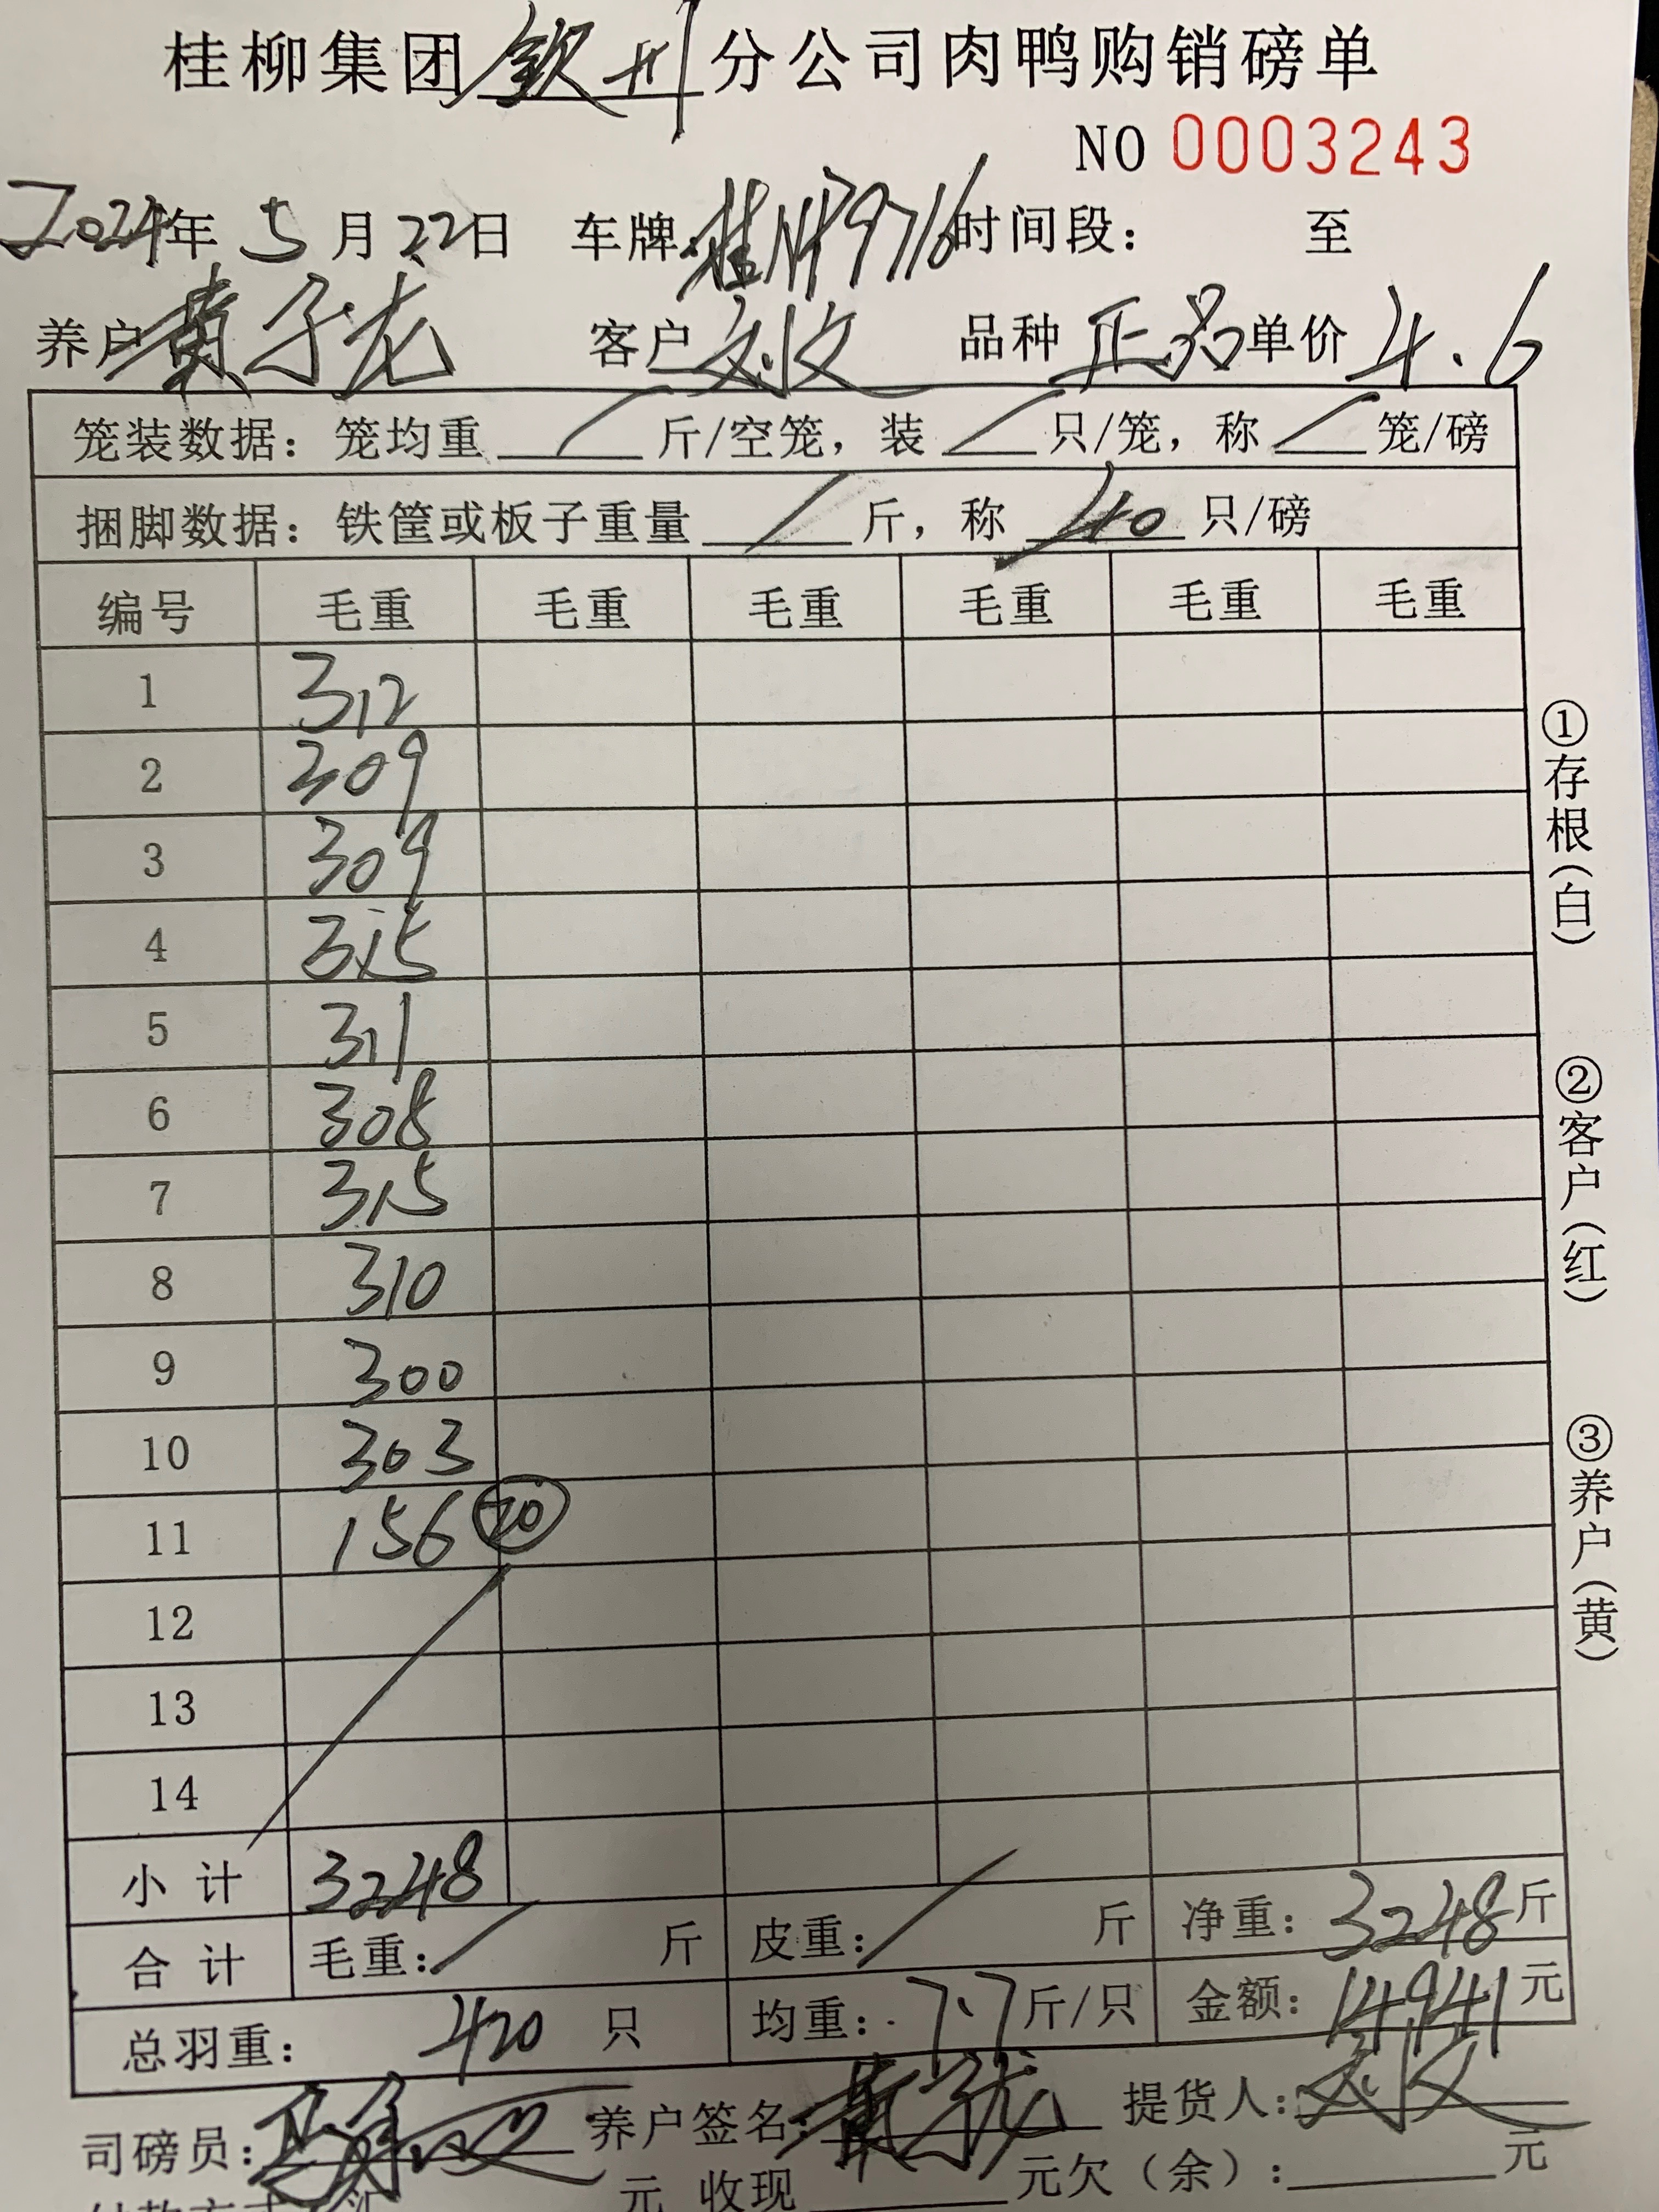 桂柳集团钦州分公司肉鸭购销磅单
NO 0003243
2024年 5月22日 车牌:桂NP9716时间段: 至
养户 黄子龙 客户 刘文 品种 正品 单价 4.6
笼装数据: 笼均重 / 斤/空笼, 装 / 只/笼, 称 / 笼/磅
捆脚数据: 铁筐或板子重量 / 斤, 称 40 只/磅
编号 毛重 毛重 毛重 毛重 毛重 毛重
1 312
2 309
3 309
4 315
5 311
6 308
7 315
8 310
9 300
10 303
11 156 20
12
13
14
小计 3248
合计 毛重: / 斤 皮重: / 斤 净重: 3248斤
总羽重: 420 只 均重: 7.7斤/只 金额: 14941元
司磅员: 养户签名: 黄子龙 提货人: 刘文
元 收现 元欠(余): 元
①存根(白)
②客户(红)
③养户(黄)